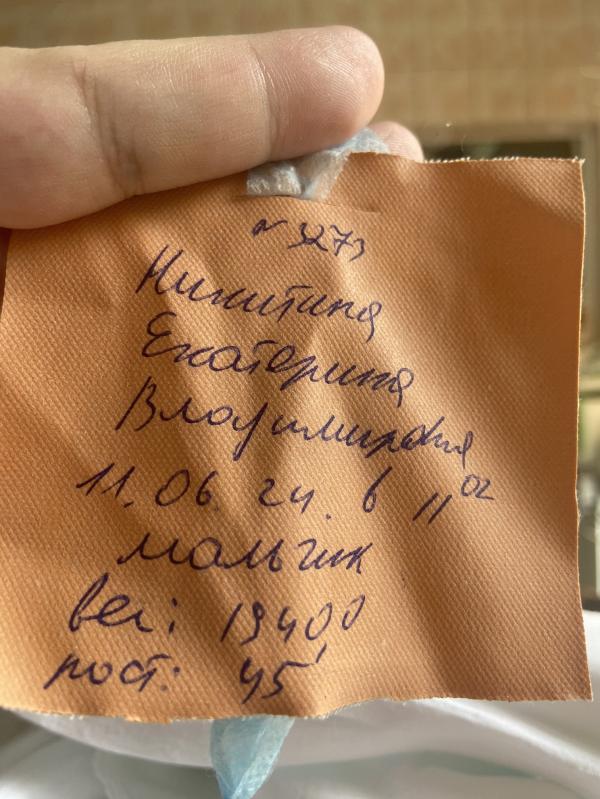 № 3273
Никитина
Екатерина
Владимировна
11.06.24. в 11 02
мальчик
вес: 1940,0
рост: 45